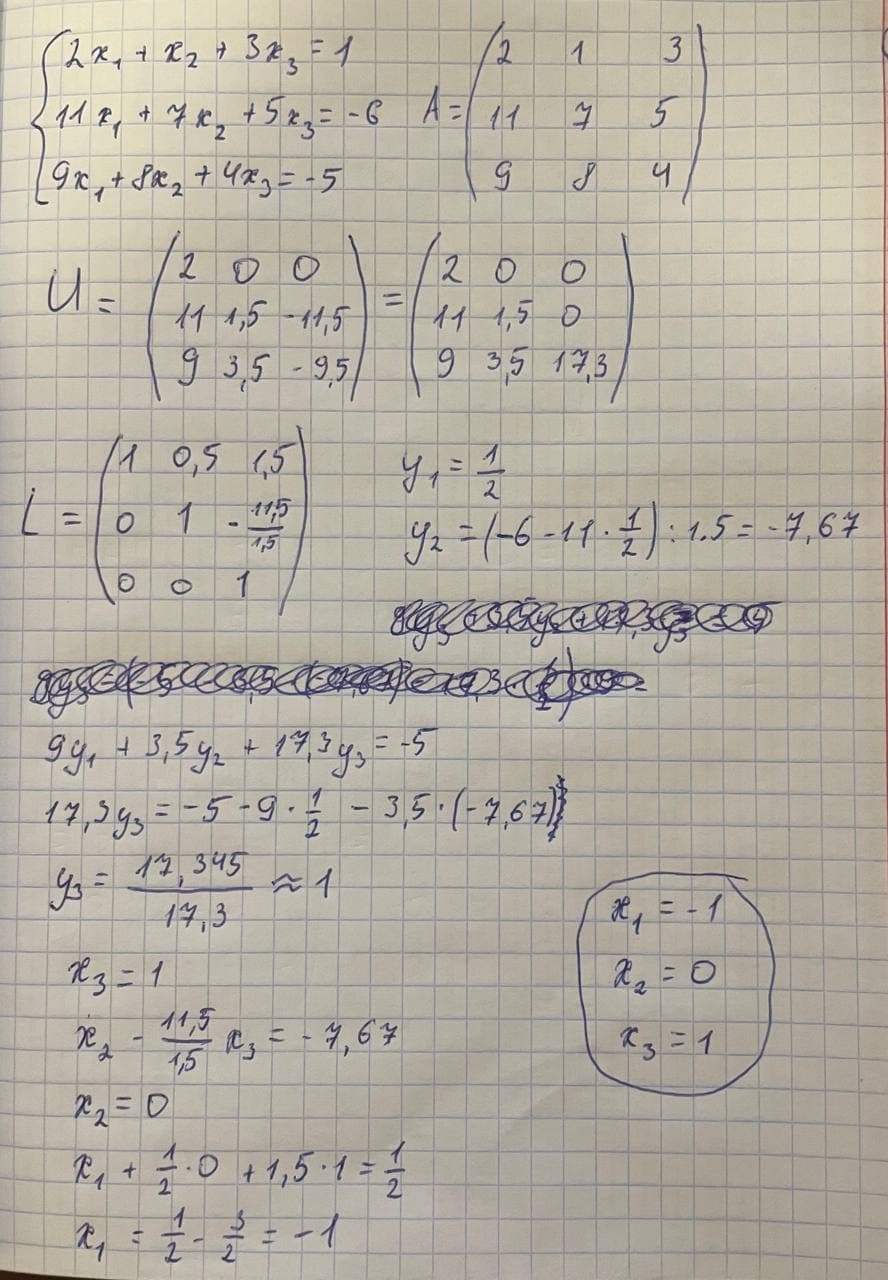 2x₁ + x₂ + 3x₃ = 1
11x₁ + 7x₂ + 5x₃ = -6
9x₁ + 8x₂ + 4x₃ = -5
A =
2 1 3
11 7 5
9 8 4
U =
2 0 0
11 1,5 -11,5
9 3,5 -9,5
=
2 0 0
11 1,5 0
9 3,5 17,3
L =
1 0,5 1,5
0 1 -11,5/1,5
0 0 1
y₁ = 1/2
y₂ = (-6 - 11 · 1/2) : 1.5 = -7,67
9y₁ + 3,5y₂ + 17,3y₃ = -5
17,3y₃ = -5 - 9 · 1/2 - 3,5 · (-7,67)
y₃ = 17,345/17,3 ≈ 1
x₃ = 1
x₂ - 11,5/1,5 x₃ = -7,67
x₂ = 0
x₁ + 1/2 · 0 + 1,5 · 1 = 1/2
x₁ = 1/2 - 3/2 = -1
x₁ = -1
x₂ = 0
x₃ = 1